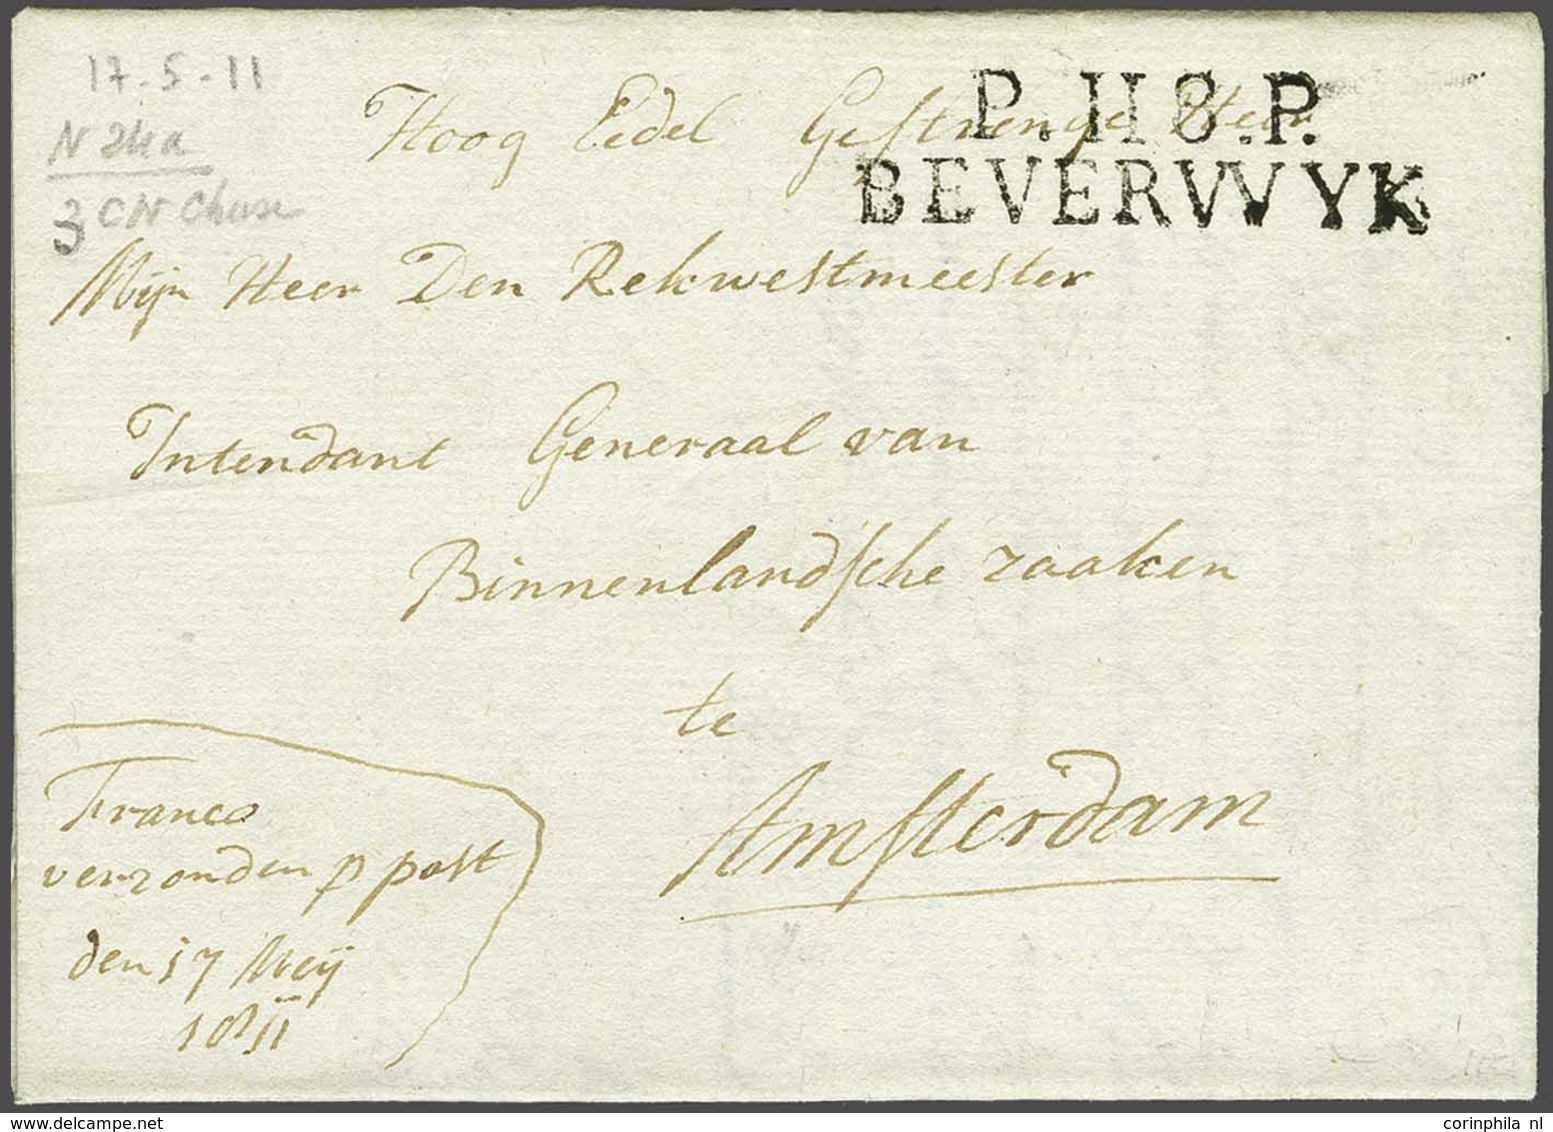 17-5-11
N 24a
3
P.118.P.
BEVERWYK
Hoog Eedel Gestrenge Heer
Mijn Heer Den Rekwestmeester
Intendant Generaal van
Binnenlandsche zaaken
te
Amsterdam
Franco
verzonden p post
den 17 Meij
1811
corinphila nl